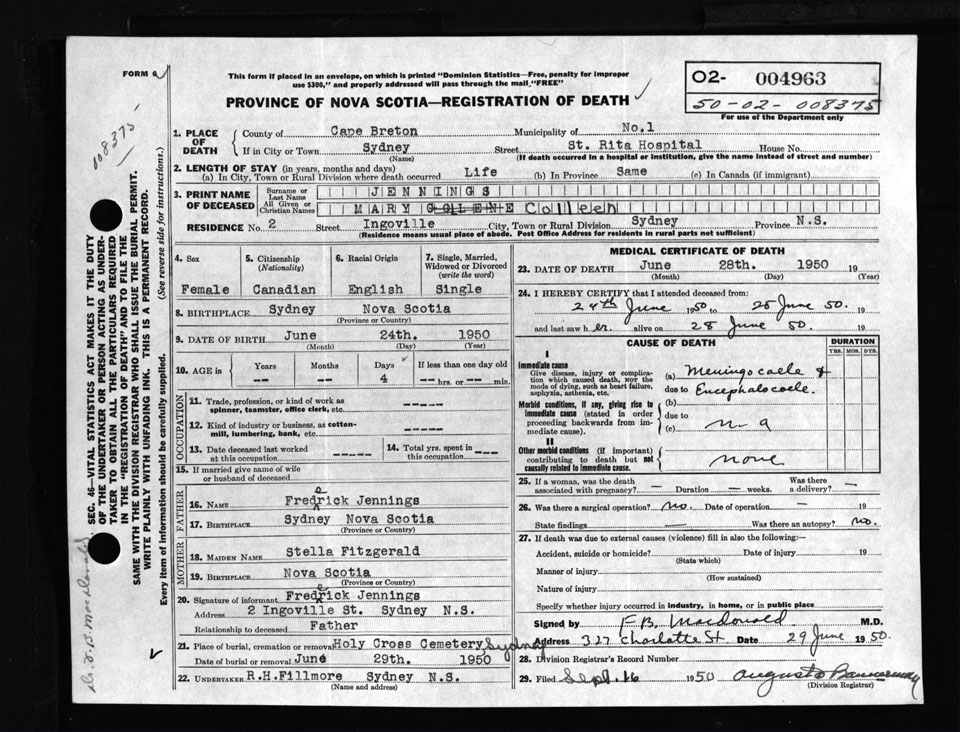 FORM 6
This form if placed in an envelope, on which is printed "Dominion Statistics—Free, penalty for improper
use $300," and properly addressed will pass through the mail "FREE"
PROVINCE OF NOVA SCOTIA—REGISTRATION OF DEATH
O2- 004963
50-02-008375
For use of the Department only
108375
1. PLACE OF DEATH
County of Cape Breton Municipality of No.1
If in City or Town Sydney Street St. Rita Hospital House No.
(Name) (If death occurred in a hospital or institution, give the name instead of street and number)
2. LENGTH OF STAY (in years, months and days)
(a) In City, Town or Rural Division where death occurred Life (b) In Province Same (c) In Canada (if immigrant)
3. PRINT NAME OF DECEASED
Surname or Last Name JENNINGS
All Given or Christian Names MARY COLENE Colleen
RESIDENCE No. 2 Street Ingoville City, Town or Rural Division Sydney Province N.S.
(Residence means usual place of abode. Post Office Address for residents in rural parts not sufficient)
4. Sex
Female
5. Citizenship (Nationality)
Canadian
6. Racial Origin
English
7. Single, Married, Widowed or Divorced (write the word)
Single
8. BIRTHPLACE Sydney Nova Scotia
(Province or Country)
9. DATE OF BIRTH June 24th. 1950
(Month) (Day) (Year)
10. AGE in Years Months Days If less than one day old
-- -- 4 -- hrs. or -- min.
OCCUPATION
11. Trade, profession or kind of work as spinner, teamster, office clerk, etc. -----
12. Kind of industry or business, as cotton-mill, lumbering, bank, etc. -----
13. Date deceased last worked at this occupation ----
14. Total yrs. spent in this occupation ---
15. If married give name of wife or husband of deceased
FATHER
16. NAME Fredrick Jennings
e
17. BIRTHPLACE Sydney Nova Scotia
(Province or Country)
MOTHER
18. MAIDEN NAME Stella Fitzgerald
19. BIRTHPLACE Nova Scotia
(Province or Country)
20. Signature of informant Fredrick Jennings
e
Address 2 Ingoville St. Sydney N.S.
Relationship to deceased Father
21. Place of burial, cremation or removal Holy Cross Cemetery Sydney
Date of burial or removal June 29th. 1950
22. UNDERTAKER R.H.Fillmore Sydney N.S.
(Name and address)
MEDICAL CERTIFICATE OF DEATH
23. DATE OF DEATH June 28th. 1950 19
(Month) (Day) (Year)
24. I HEREBY CERTIFY that I attended deceased from:
24th June 1950 to 28 June 50. 19
and last saw h er alive on 28 June 50. 19
CAUSE OF DEATH
DURATION
YRS. MOS. DYS.
I
Immediate cause
Give disease, injury or complication which caused death, NOT the mode of dying, such as heart failure, asphyxia, asthenia, etc.
(a) Meningocaele &
due to Encephalocoele.
Morbid conditions, if any, giving rise to immediate cause (stated in order proceeding backwards from immediate cause).
(b)
due to
(c) n-a
II
Other morbid conditions (if important) contributing to death but not causally related to immediate cause.
none
25. If a woman, was the death associated with pregnancy? — Duration — weeks. Was there a delivery? —
26. Was there a surgical operation? no. Date of operation — 19
State findings — Was there an autopsy? no.
27. If death was due to external causes (violence) fill in also the following:—
Accident, suicide or homicide? Date of injury 19
(State which)
Manner of injury
(How sustained)
Nature of injury
Specify whether injury occurred in industry, in home, or in public place
Signed by F.B. Macdonald M.D.
Address 327 Charlotte St Date 29 June 1950.
28. Division Registrar's Record Number
29. Filed Sept. 16 1950 Augusta Bannerman
(Division Registrar)
SEC. 46—VITAL STATISTICS ACT MAKES IT THE DUTY
OF THE UNDERTAKER OR PERSON ACTING AS UNDER-
TAKER TO OBTAIN ALL THE PARTICULARS REQUIRED
IN THE "REGISTRATION OF DEATH" AND TO FILE THE
SAME WITH THE DIVISION REGISTRAR WHO SHALL ISSUE THE BURIAL PERMIT.
WRITE PLAINLY WITH UNFADING INK. THIS IS A PERMANENT RECORD.
Every item of information should be carefully supplied. (See reverse side for instructions.)